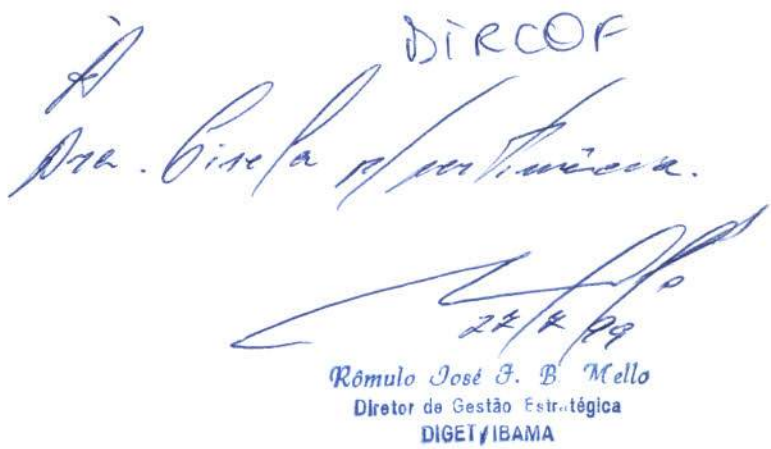 DIRCOF
À
Dra. Gisela p/
27/7/99
Rômulo José F. B. Mello
Diretor de Gestão Estratégica
DIGET/IBAMA